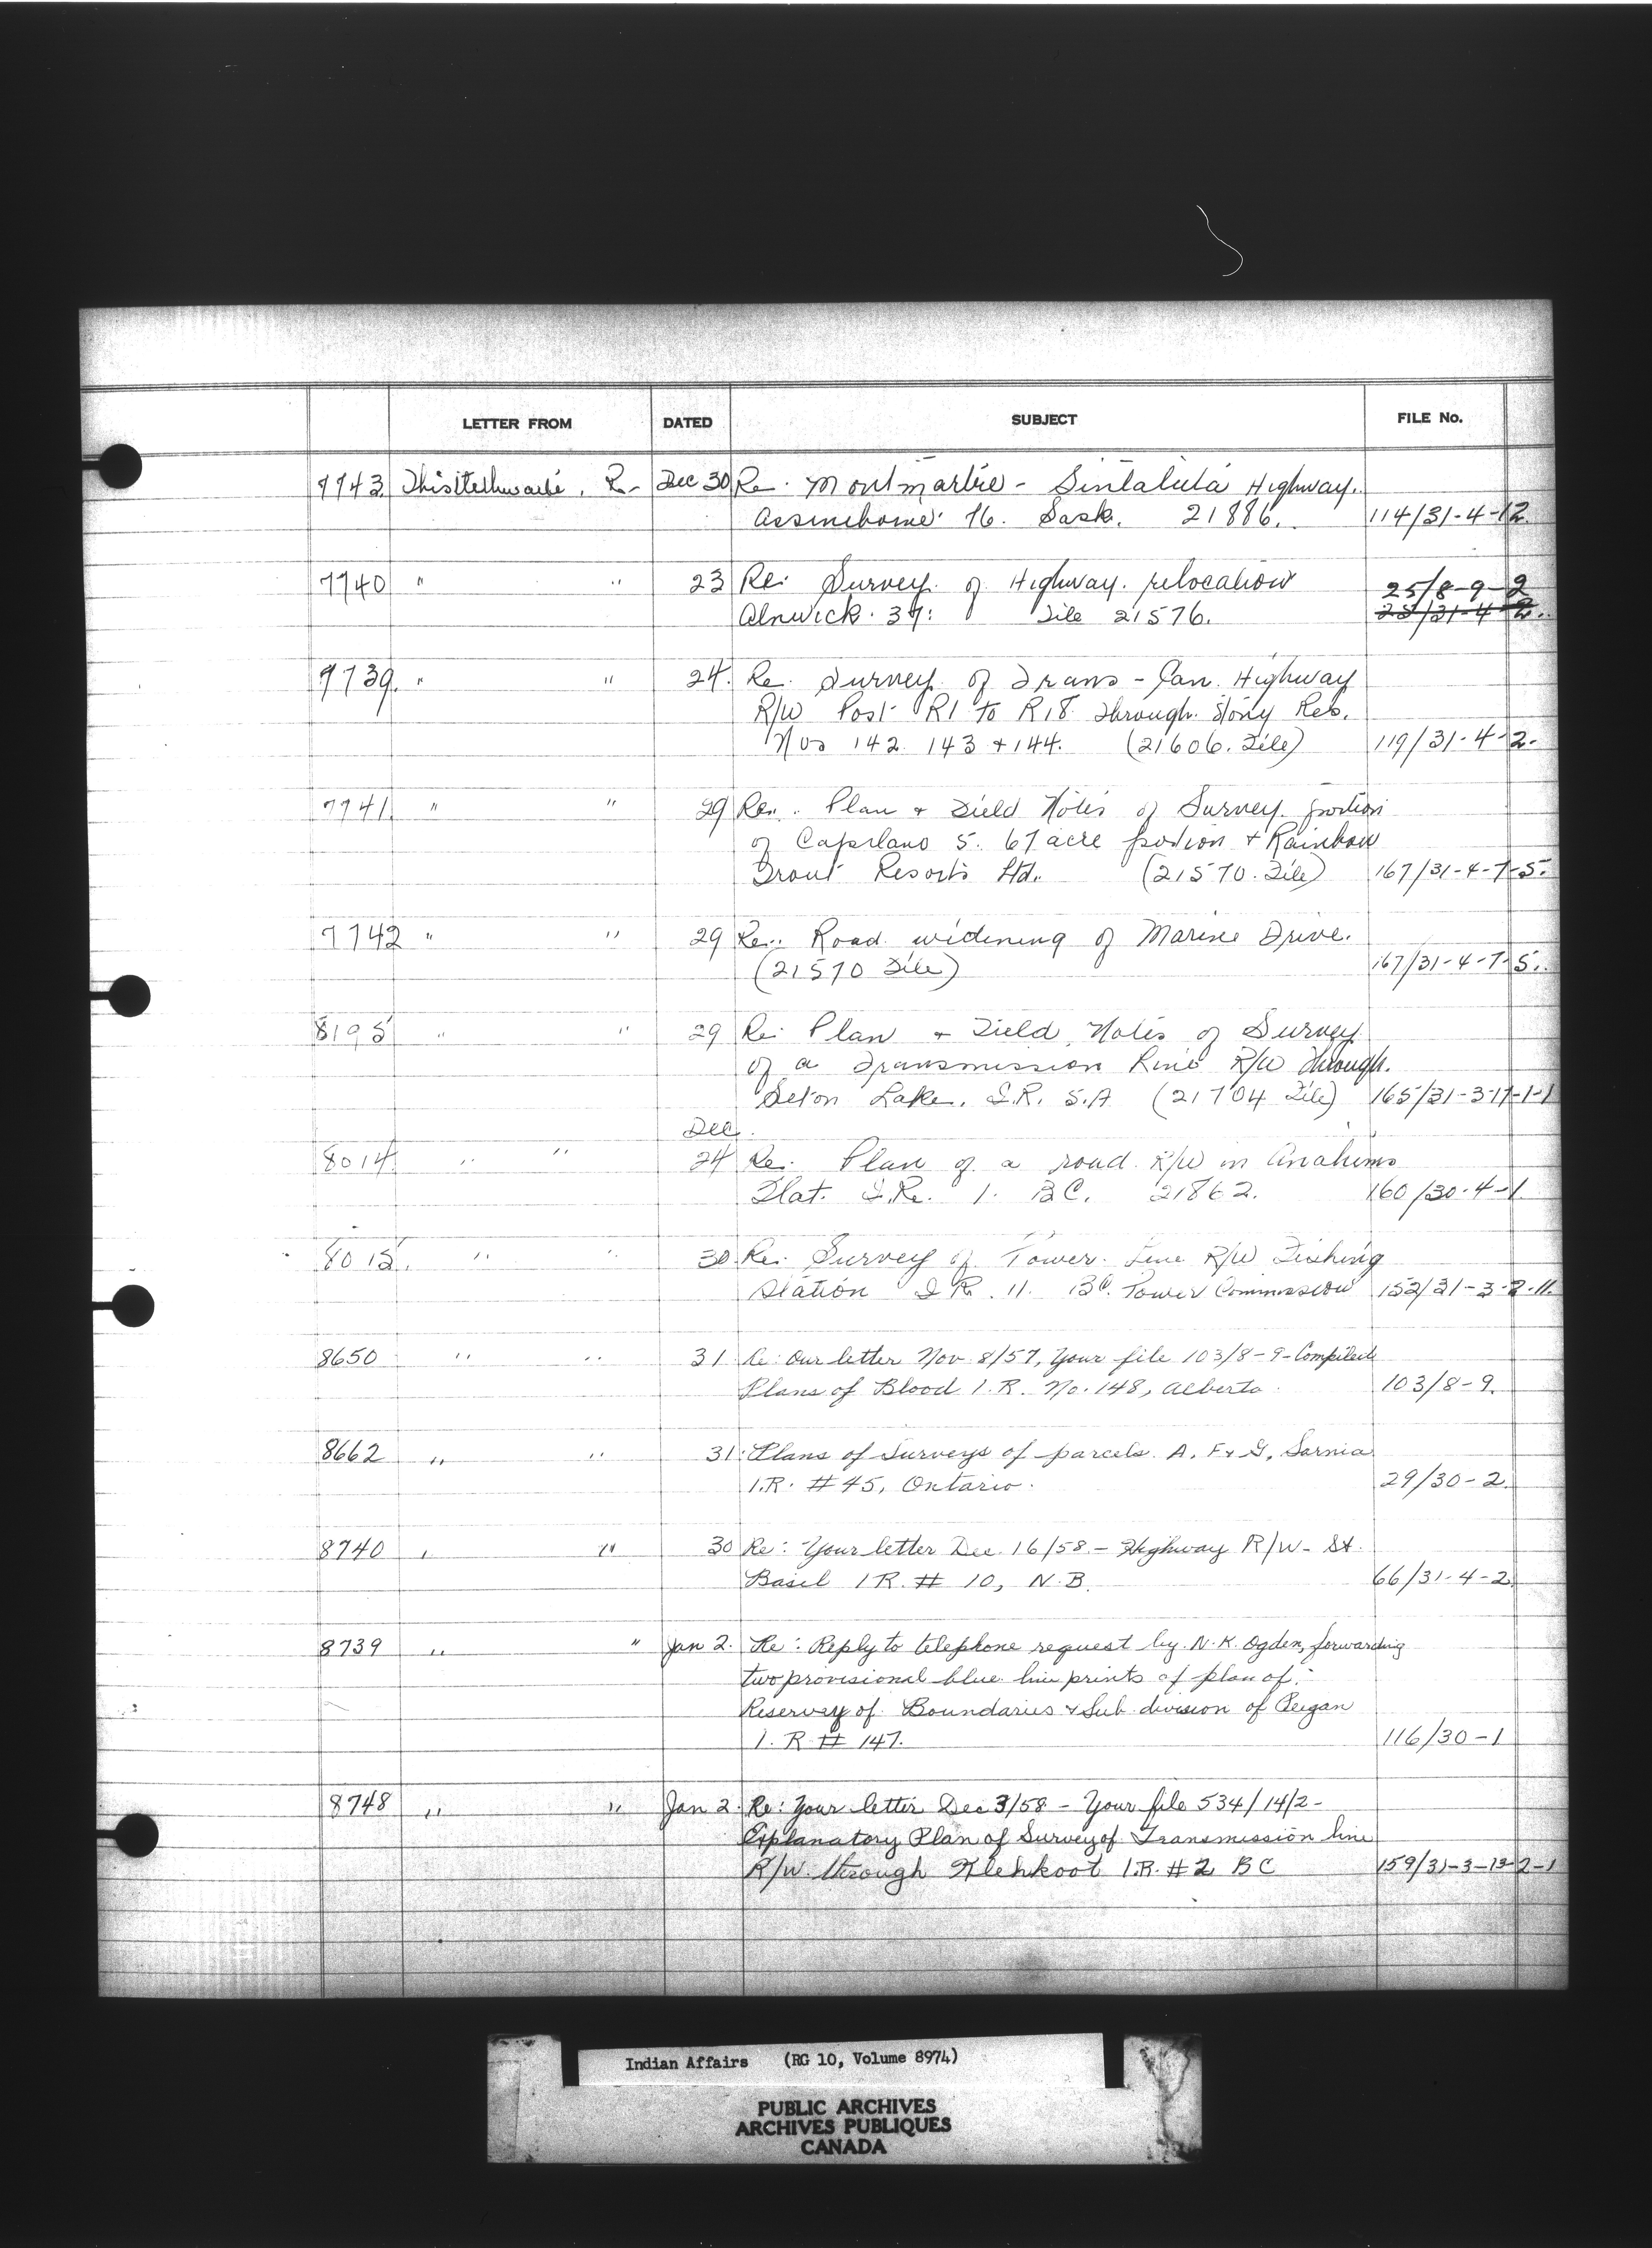 LETTER FROM DATED SUBJECT FILE No.
7743 Thistlethwaite, R- Dec 30 Re. Montmartre - Sintaluta Highway.
Assiniboine 76. Sask. 21886. 114/31-4-12.
7740 " " 23 Re: Survey of Highway relocation 25/8-9-2
Alnwick 37: File 21576. 25/31-4-2.
7739. " " 24. Re. Survey of Trans-Can. Highway
R/W Post R1 to R18 through Stony Res.
Nos 142 143 + 144. (21606. File) 119/31-4-2.
7741 " " 29 Re. Plan + Field Notes of Survey portion
of Capilano 5. 67 acre portion + Rainbow
Trout Resorts Ltd. (21570. File) 167/31-4-7-5.
7742 " " 29 Re: Road widening of Marine Drive.
(21570 File) 167/31-4-7-5.
8195 " " 29 Re: Plan + Field Notes of Survey
of a Transmission Line R/W through
Seton Lake. I.R. 5.A (21704 File) 165/31-3-17-1-1
Dec.
8014 " " 24 Re. Plan of a road R/W in Anahims
Flat. I.R. 1. BC. 21862. 160/30-4-1
8015. " " 30 Re: Survey of Power Line R/W Fishing
Station I R. 11. BC. Power Commission 152/31-3-2-11.
8650 " " 31 Re: Our letter Nov 8/57, Your file 103/8-9-Compiled
Plans of Blood I.R. No. 148, Alberta. 103/8-9.
8662 " " 31 Plans of Surveys of parcels A, F & G, Sarnia
I.R. # 45, Ontario. 29/30-2
8740 " " 30 Re: Your letter Dec. 16/58 - Highway R/W - St.
Basil I R. # 10, N.B. 66/31-4-2
8739 " " Jan 2. Re: Reply to telephone request by N.K. Ogden, forwarding
two provisional blue line prints of plan of:
Reservey of Boundaries & Sub division of Peigan
I. R # 147. 116/30-1
8748 " " Jan 2. Re: Your letter Dec 3/58 - Your file 534/14/2-
Explanatory Plan of Survey of Transmission line
R/W through Klehkoot I.R. #2 BC 159/31-3-13-2-1
Indian Affairs (RG 10, Volume 8974)
PUBLIC ARCHIVES
ARCHIVES PUBLIQUES
CANADA